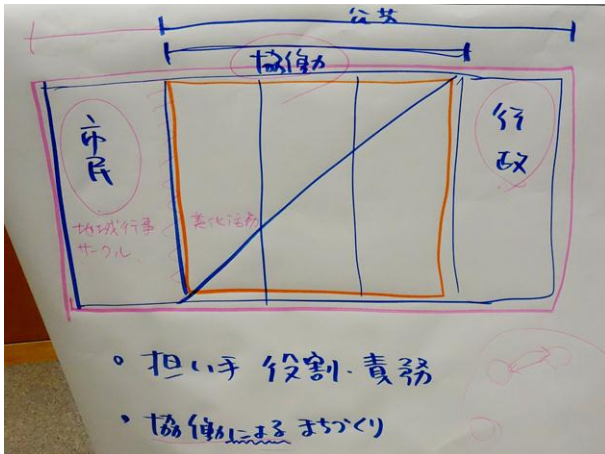 公共
協働
市民
行政
地域行事
サークル
美化活動
• 担い手 役割・責務
• 協働によるまちづくり